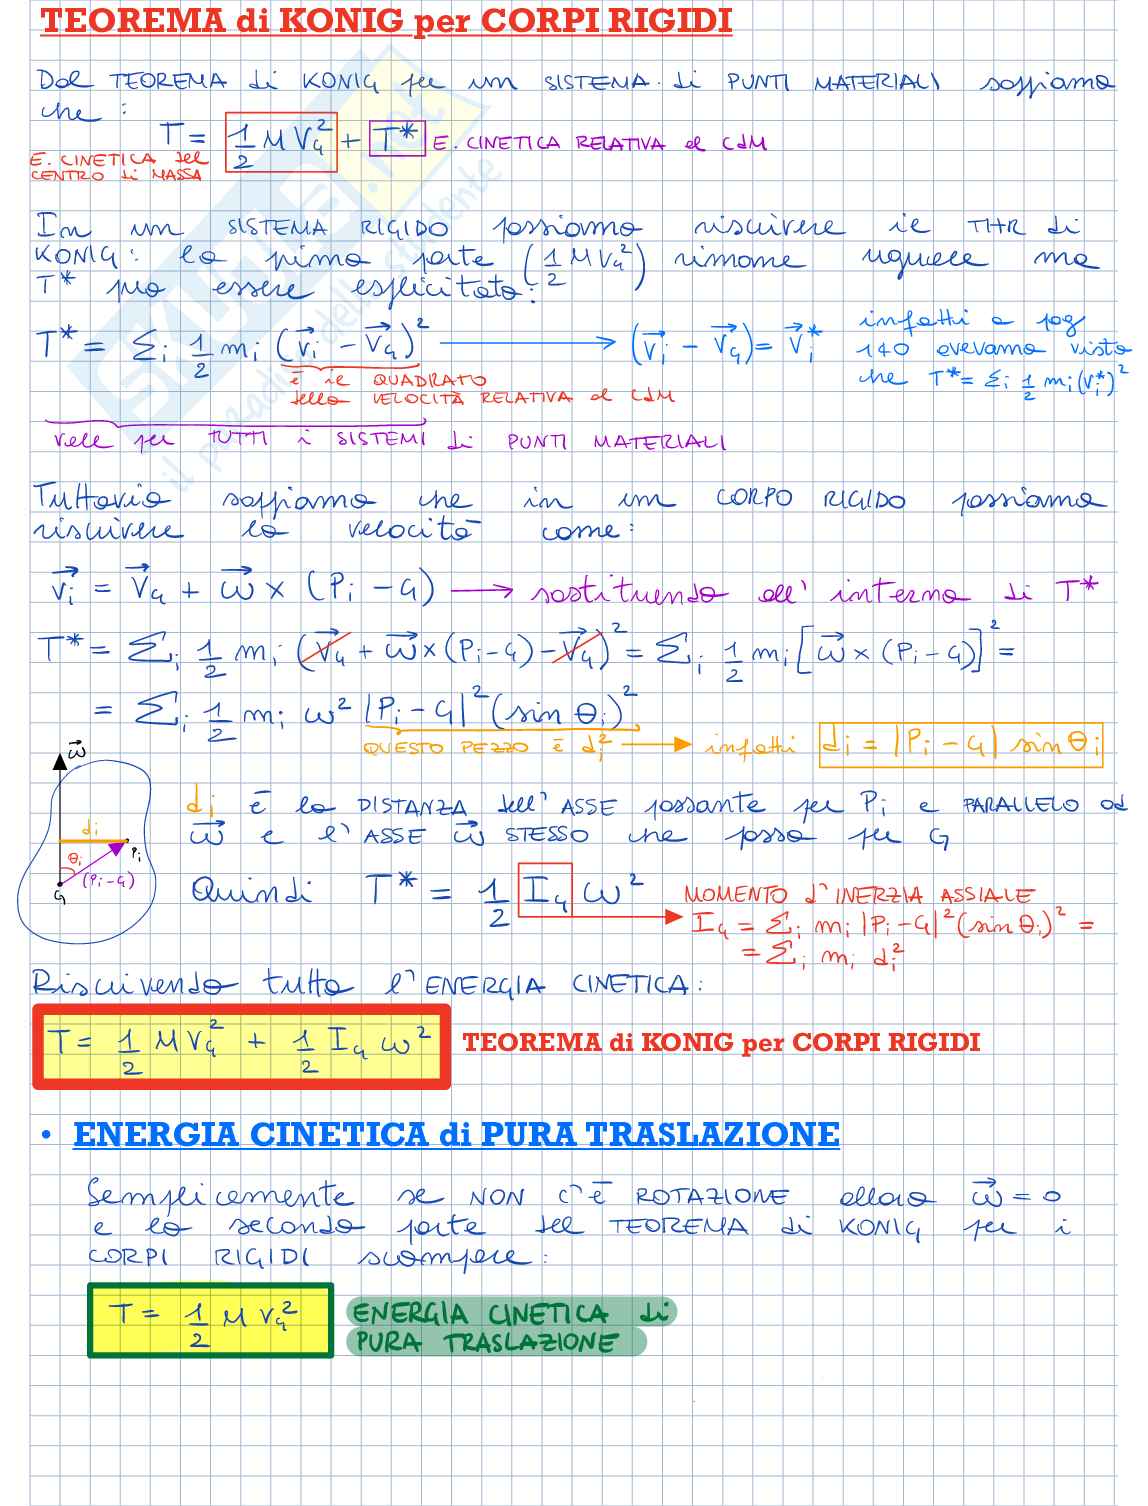 TEOREMA di KONIG per CORPI RIGIDI
Dal TEOREMA di KONIG per un SISTEMA di PUNTI MATERIALI sappiamo
che:
T = 1/2 M V_G² + T* E. CINETICA RELATIVA al CdM
E. CINETICA del
CENTRO di MASSA
In un SISTEMA RIGIDO possiamo riscrivere il THR di
KONIG: la prima parte (1/2 M V_G²) rimane uguale ma
T* può essere esplicitata:
T* = Σ_i 1/2 m_i (v⃗_i − V⃗_G)² → (v⃗_i − V⃗_G) = v⃗_i*
infatti a pag
140 avevamo visto
che T* = Σ_i 1/2 m_i (v_i*)²
è il QUADRATO
della VELOCITÀ RELATIVA al CdM
vale per TUTTI i SISTEMI di PUNTI MATERIALI
Tuttavia sappiamo che in un CORPO RIGIDO possiamo
riscrivere la velocità come:
v⃗_i = V⃗_G + ω⃗ × (P_i − G) → sostituendo all'interno di T*
T* = Σ_i 1/2 m_i (V⃗_G + ω⃗ × (P_i − G) − V⃗_G)² = Σ_i 1/2 m_i [ω⃗ × (P_i − G)]² =
= Σ_i 1/2 m_i ω² |P_i − G|² (sin θ_i)²
QUESTO PEZZO è d_i² → infatti d_i = |P_i − G| sin θ_i
ω⃗
d_i
θ_i
P_i
(P_i − G)
G
d_i è la DISTANZA dell'ASSE passante per P_i e PARALLELO ad
ω⃗ e l'ASSE ω⃗ STESSO che passa per G
Quindi T* = 1/2 I_G ω²
MOMENTO d'INERZIA ASSIALE
I_G = Σ_i m_i |P_i − G|² (sin θ_i)² =
= Σ_i m_i d_i²
Riscrivendo tutta l'ENERGIA CINETICA:
T = 1/2 M V_G² + 1/2 I_G ω² TEOREMA di KONIG per CORPI RIGIDI
• ENERGIA CINETICA di PURA TRASLAZIONE
Semplicemente se NON c'è ROTAZIONE allora ω⃗ = 0
e la seconda parte del TEOREMA di KONIG per i
CORPI RIGIDI scompare:
T = 1/2 M V_G² ENERGIA CINETICA di
PURA TRASLAZIONE